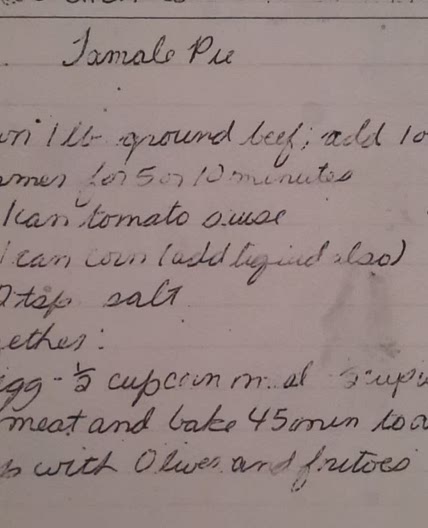 Tamale Pie
1 lb ground beef; add 1
for 5 or 10 minutes
1 can tomato sause
1 can corn (add liqiud also)
2 tsp salt
ether:
egg - 1/2 cup corn m al
meat and bake 45 min to a
with Olives and fritoes